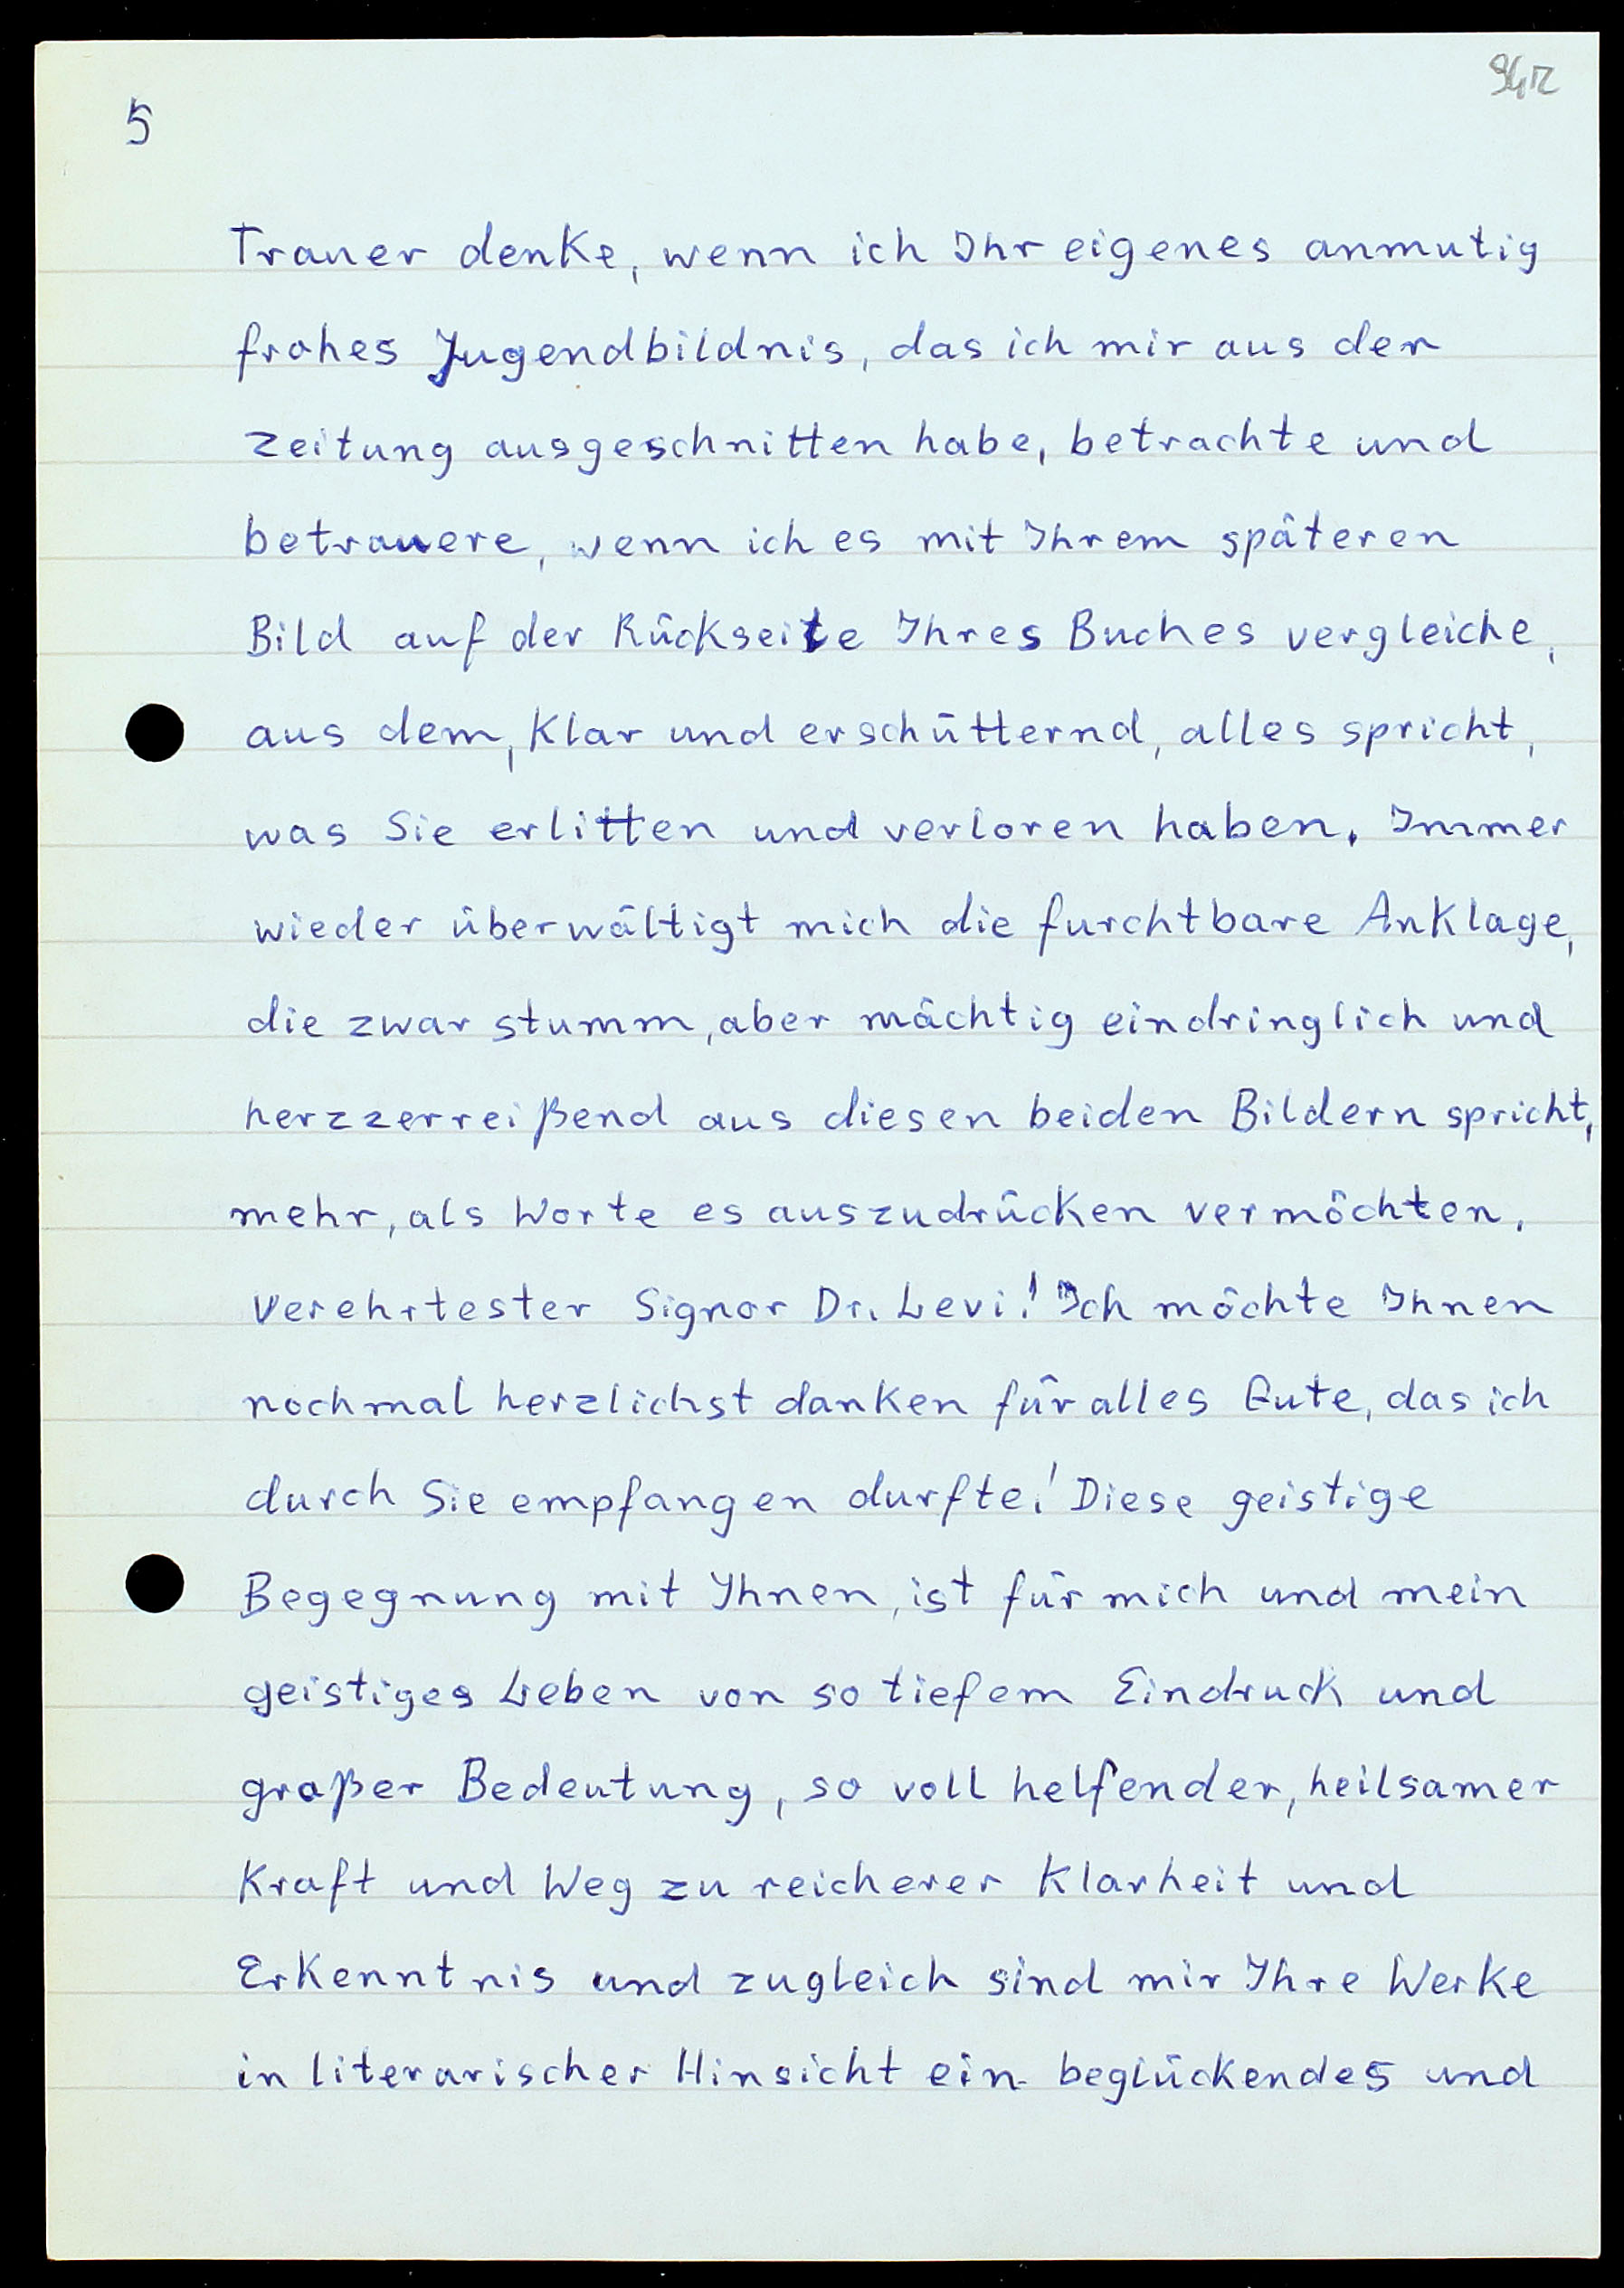 94r
5
Trauer denke, wenn ich Ihr eigenes anmutig
frohes Jugendbildnis, das ich mir aus der
Zeitung ausgeschnitten habe, betrachte und
betrauere, wenn ich es mit Ihrem späteren
Bild auf der Rückseite Ihres Buches vergleiche,
aus dem, klar und erschütternd, alles spricht,
was Sie erlitten und verloren haben. Immer
wieder überwältigt mich die furchtbare Anklage,
die zwar stumm, aber mächtig eindringlich und
herzzerreißend aus diesen beiden Bildern spricht,
mehr, als Worte es auszudrücken vermöchten.
Verehrtester Signor Dr. Levi! Ich möchte Ihnen
nochmal herzlichst danken für alles Gute, das ich
durch Sie empfangen durfte! Diese geistige
Begegnung mit Ihnen, ist für mich und mein
geistiges Leben von so tiefem Eindruck und
großer Bedeutung, so voll helfender, heilsamer
Kraft und Weg zu reicherer Klarheit und
Erkenntnis und zugleich sind mir Ihre Werke
in literarischer Hinsicht ein beglückendes und